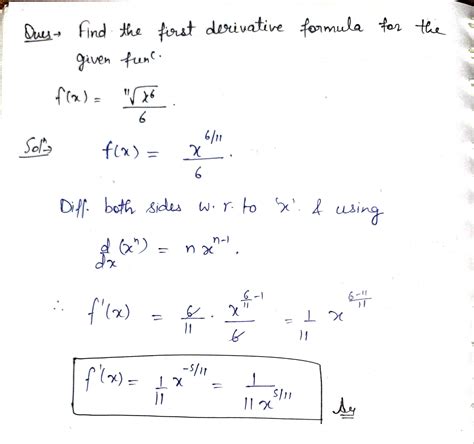 Ques→ Find the first derivative formula for the
given funᶜ.
f(x) = ¹¹√x⁶ / 6 .
Solⁿ→ f(x) = x^{6/11} / 6 .
Diff. both sides w.r. to 'x'. & using
d/dx (xⁿ) = n xⁿ⁻¹.
∴ f'(x) = 6/11 · x^{6/11 - 1} / 6 = 1/11 x^{(6-11)/11}
f'(x) = 1/11 x^{-5/11} = 1 / 11 x^{5/11} Ans